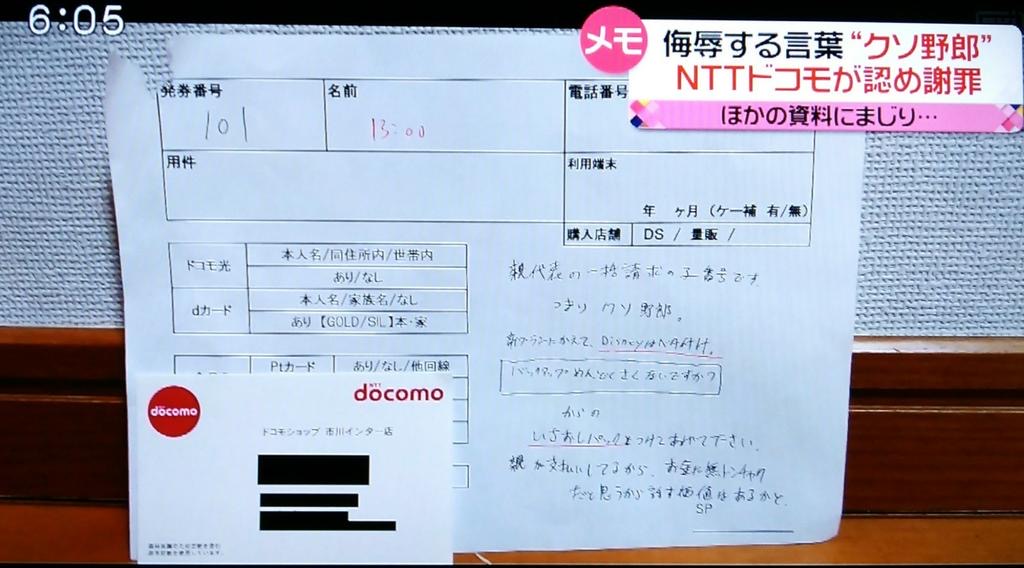 6:05
メモ
侮辱する言葉“クソ野郎”
NTTドコモが認め謝罪
ほかの資料にまじり…
発券番号
101
名前
13:00
電話番号
用件
利用端末
年 ヶ月 (ケー補 有/無)
購入店舗 DS / 量販 /
ドコモ光
本人名/同住所内/世帯内
あり/なし
dカード
本人名/家族名/なし
あり【GOLD/SIL】本・家
Ptカード
あり/なし/他回線
親代表の一括請求の子番号です.
つまり クソ野郎。
新プランにかえて、Disneyはベタ付け。
バックアップめんどくさくないですか?
からの
いちおしパックをつけてあげて下さい.
親が支払いしてるから、お金に無トンチャク
だと思うから話す価値はあるかと、
SP
döcomo
NTT
döcomo
ドコモショップ 市川インター店